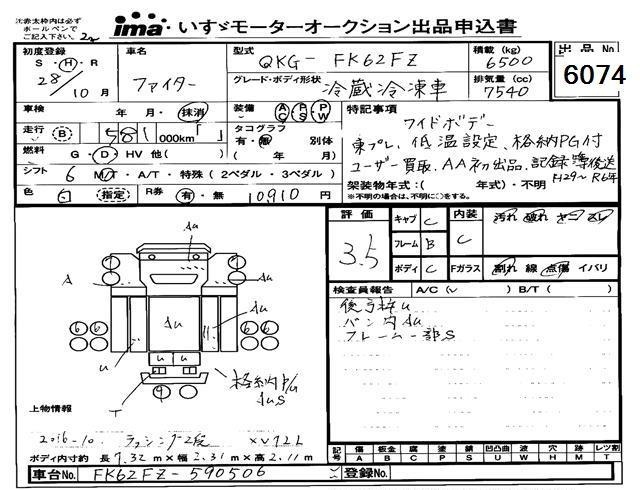 注)赤太枠内は必ず
ボールペンで
ご記入下さい。
ima いすゞモーターオークション出品申込書
初度登録 車名 型式 QKG- FK62FZ 積載(kg) 6500 出品No
S・H・R 28年 10月 ファイター グレード・ボディ形状 冷蔵冷凍車 排気量(cc) 7540 6074
車検 年・月・抹消 装備 AC PS PW 特記事項
ワイドボデー
走行 B 581 000km「 」 タコグラフ 有・無 別体 東プレ、低温設定、格納PG付
燃料 G・D・HV 他( ) ( 年 月) ユーザー買取、AA初出品、記録簿等後送
H29~R6年
シフト 6 M/T・A/T・特殊(2ペダル・3ペダル) 架装物年式:( 年式)・不明
※不明の場合は、不明に○をする。
色 白 (指定) R券 有・無 10910円
評価 3.5 キャブ C 内装 C 汚れ 破れ ヤニ スレ
フレーム B
ボディ C Fガラス 割れ 線 点傷 イパリ
検査員報告 A/C( ) B/T( )
後弓枠u
バン内Au
フレーム一部S
Au
A
6 6 6 6
Au
Au
u
u u
T
格納P/G
AuS
上物情報
2016-10. ラッシング2段 XV72L
ボディ内寸 約 長 7.32m × 幅 2.31m × 高 2.11m
記号 傷 A 板金 B 腐 C 塗 P 錆 S 凹凸曲 U 波 W 穴 H 跡 M レツ割 T
車台No. FK62FZ-590506 登録No.